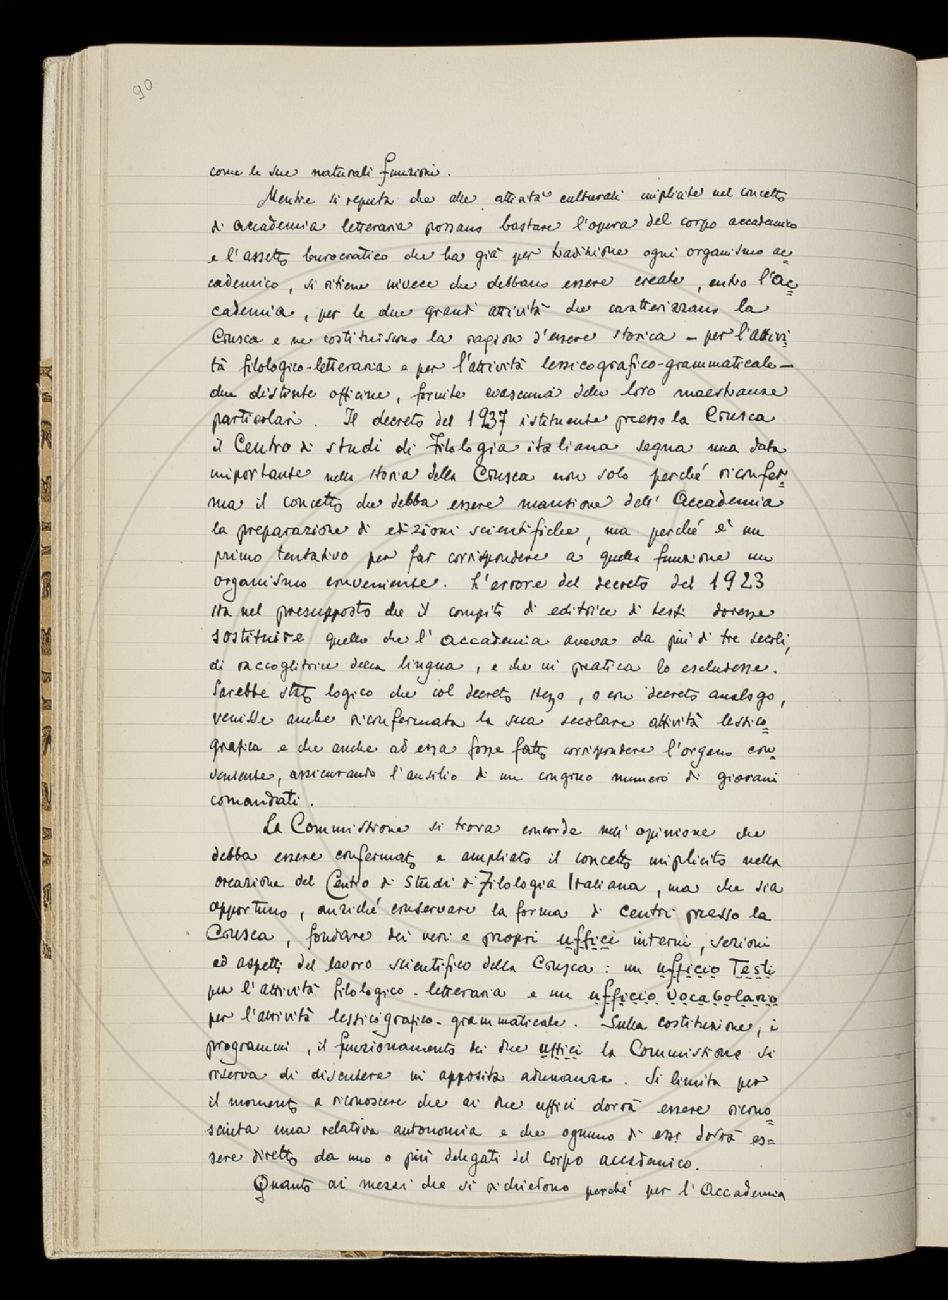 90
come le sue naturali funzioni.
Mentre si reputa che alle attività culturali implicite nel concetto
di accademia letteraria possano bastare l'opera del corpo accademico
e l'assetto burocratico che ha già per tradizione ogni organismo ac=
cademico, si ritiene invece che debbano essere create, entro l'Ac=
cademia, per le due grandi attività che caratterizzano la
Crusca e ne costituiscono la ragion d'essere storica – per l'attivi=
tà filologico-letteraria e per l'attività lessicografico-grammaticale –
due distinte officine, fornite ciascuna delle loro maestranze
particolari. Il decreto del 1937 istituente presso la Crusca
il Centro di studi di Filologia italiana segna una data
importante nella storia della Crusca non solo perché riconfer=
ma il concetto che debba essere mansione dell'Accademia
la preparazione di edizioni scientifiche, ma perché è un
primo tentativo per far corrispondere a quella funzione un
organismo conveniente. L'errore del decreto del 1923
sta nel presupposto che il compito di editrice di testi dovesse
sostituire quello che l'Accademia aveva da più di tre secoli,
di raccoglitrice della lingua, e che in pratica lo escludesse.
Sarebbe stato logico che col decreto stesso, o con decreto analogo,
venisse anche riconfermata la sua secolare attività lessico=
grafica e che anche ad essa fosse fatto corrispondere l'organo con=
veniente, assicurando l'ausilio di un congruo numero di giovani
comandati.
La Commissione si trova concorde nell'opinione che
debba essere confermato e ampliato il concetto implicito nella
creazione del Centro di Studi di Filologia Italiana, ma che sia
opportuno, anziché conservare la forma di centri presso la
Crusca, fondare dei veri e propri uffici interni, sezioni
ed aspetti del lavoro scientifico della Crusca: un ufficio Testi
per l'attività filologico-letteraria e un ufficio Vocabolario
per l'attività lessicografico-grammaticale. Sulla costituzione, i
programmi, il funzionamento dei due uffici la Commissione si
riserva di discutere in apposita adunanza. Si limita per
il momento a riconoscere che ai due uffici dovrà essere ricono=
sciuta una relativa autonomia e che ognuno di essi dovrà es=
sere diretto da uno o più delegati del corpo accademico.
Quanto ai mezzi che si richiedono perché per l'Accademia